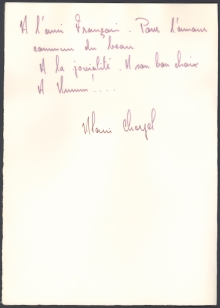 A l'ami François. Pour l'amour
commun du beau
A la jovialité. A son bon choix
A